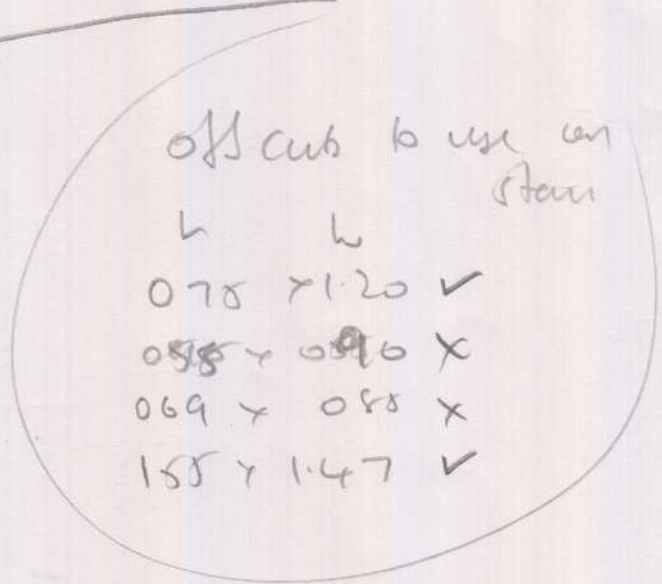 off cuts to use on
stairs
L W
075 x 1.20 ✓
x 090 X
069 x 055 X
155 x 1.47 ✓